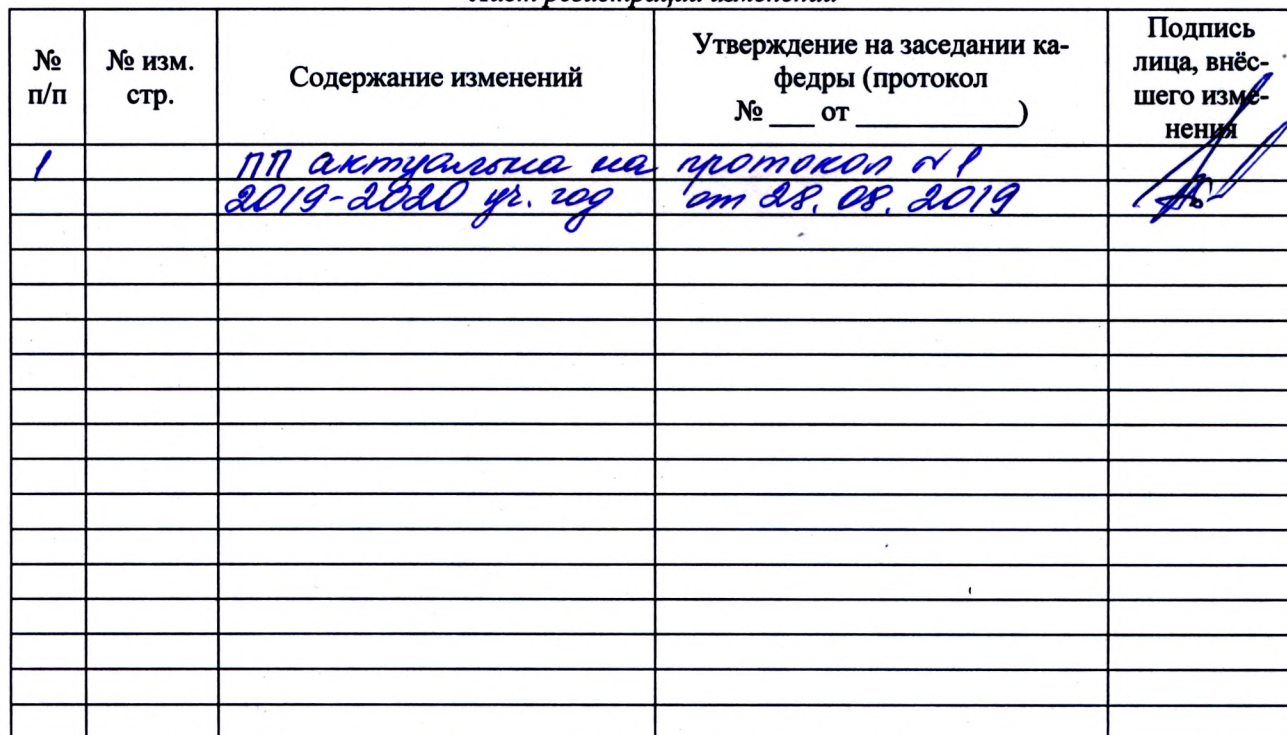 Лист регистрации изменений
№
п/п
№ изм.
стр.
Содержание изменений
Утверждение на заседании ка-
федры (протокол
№ ___ от ___________)
Подпись
лица, внёс-
шего изме-
нения
1
ПП актуальна на
2019-2020 уч. год
протокол №1
от 28.08.2019